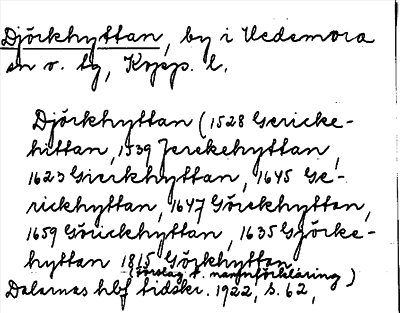 Djörkhyttan, by i Hedemora
sn o. tg, Kopp. l.
Djörkhyttan (1528 Gericke-
hittan, 1539 Jerekehyttan,
1623 Gierkhyttan, 1645 Ge-
rickhyttan, 1647 Görckhyttan,
1659 Görickhyttan, 1635 Györke-
hyttan 1815 Görkhyttan
(förslag t. namnförklaring)
Dalarnas hbf tidskr. 1922, s. 62,